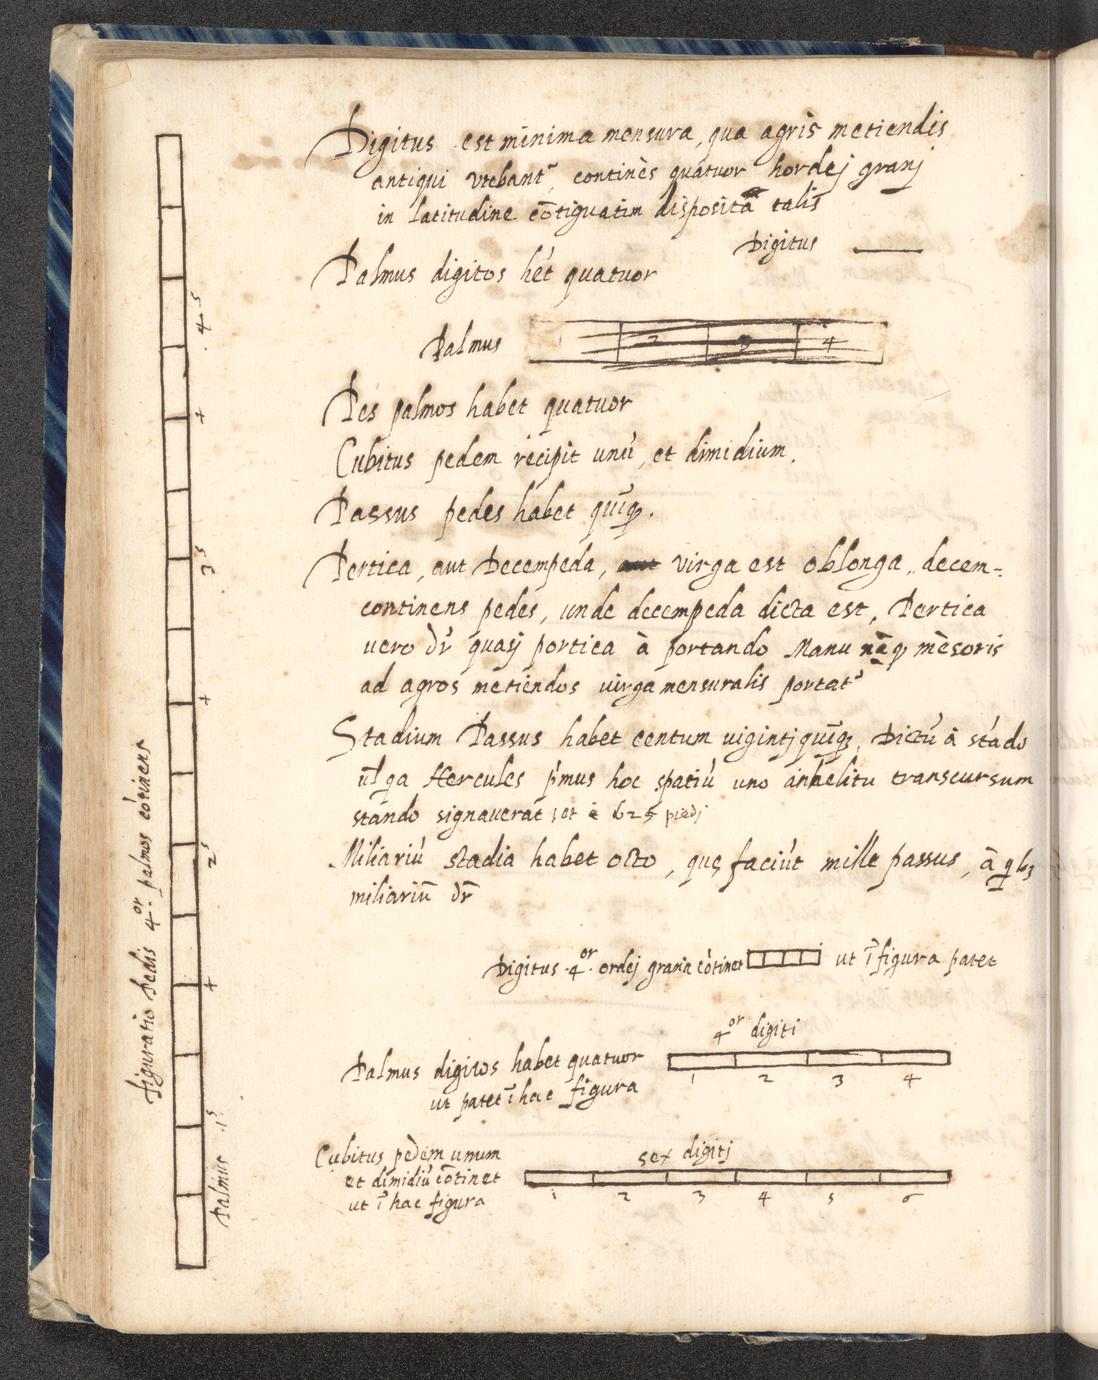 Digitus est minima mensura, qua agris metiendis
antiqui vtebant', continēs quatuor hordej granj
in latitudine cōtiguatim disposita talis
Digitus
Palmus digitos hēt quatuor
Palmus 2 3 4
Pes palmos habet quatuor
Cubitus pedem recipit unū, et dimidium.
Passus pedes habet quīq.
Pertica, aut Decempeda, aut virga est oblonga, decem-
continens pedes, unde decempeda dicta est, Pertica
uero dr̄ quasj portica à portando Manu nāq mēsoris
ad agros metiendos virga mensuralis portat'
Stadium Passus habet centum uigintj quīq, Dictū à stādo
Hercules p'mus hoc spatiū uno anhelitu transcursum
stando signauerat et è 625 piedj
Miliariū stadia habet octo, quę faciūt mille passus, à qbꝫ
miliariū dr̄
Digitus .4.or ordej grana cōtinet ut ī figura patet
4or digiti
Palmus digitos habet quatuor
ut patet ī hac figura
1 2 3 4
Cubitus pedem unum
et dimidiū cōtinet
ut ī hac figura
sex digitj
1 2 3 4 5 6
figuratio Pedis 4.or palmos cōtinens
Palmus .1s
2s
3s
.4.s